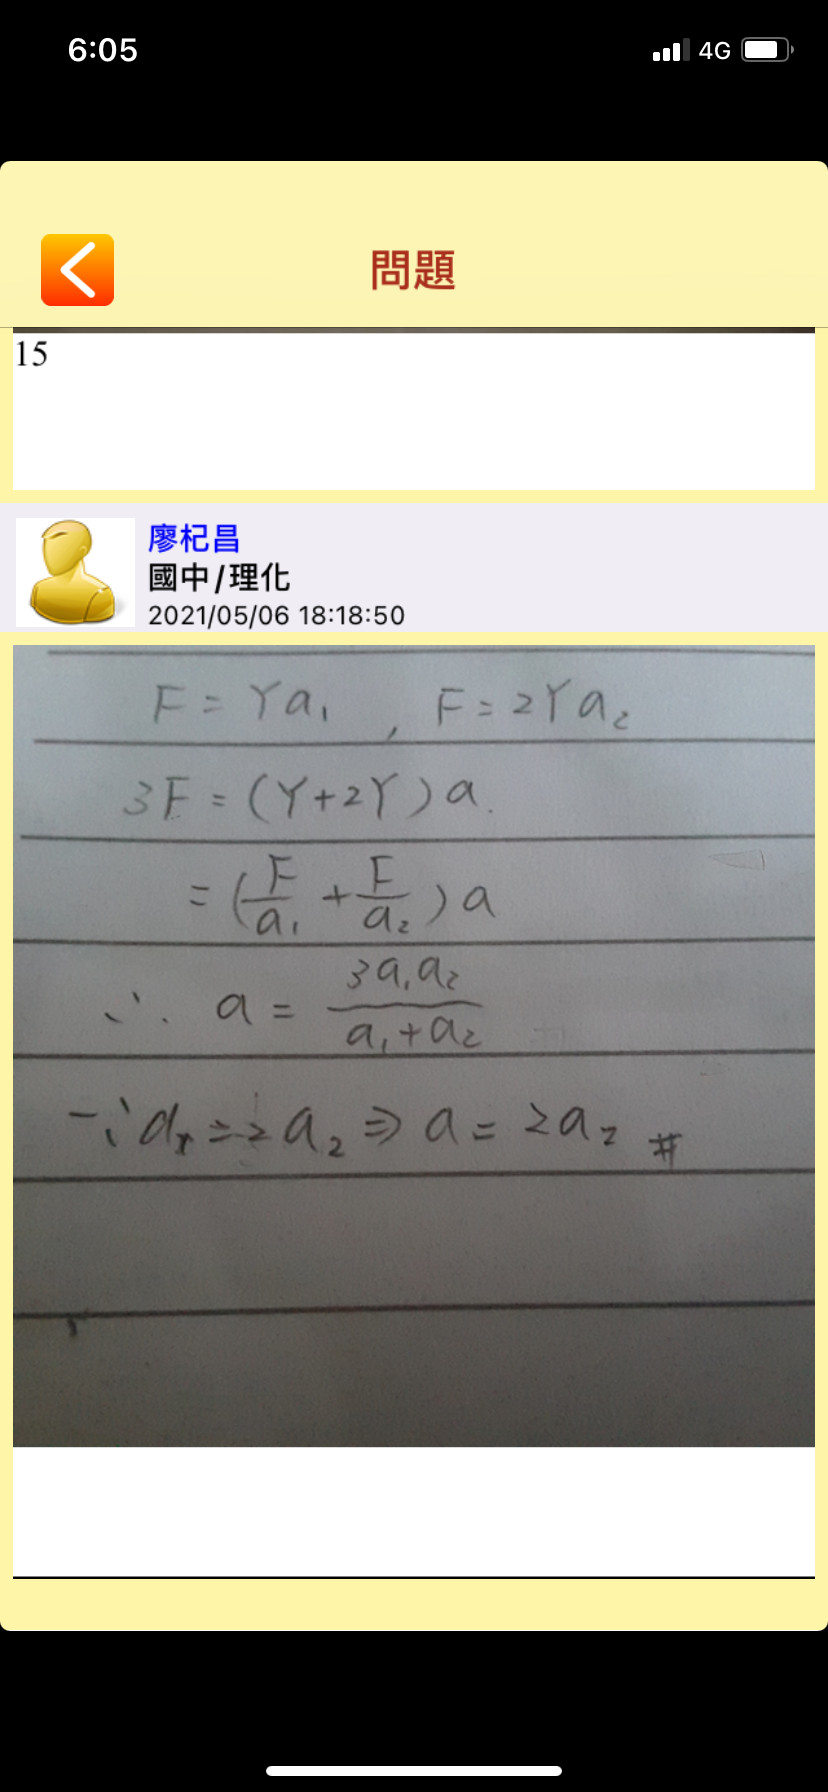 6:05 4G
問題
15
廖杞昌
國中/理化
2021/05/06 18:18:50
F = Ya₁ , F = 2Ya₂
3F = (Y+2Y)a.
= (F/a₁ + F/a₂)a
∴ a = 3a₁a₂/(a₁+a₂)
a₂ ⇒ a = 2a₂ #